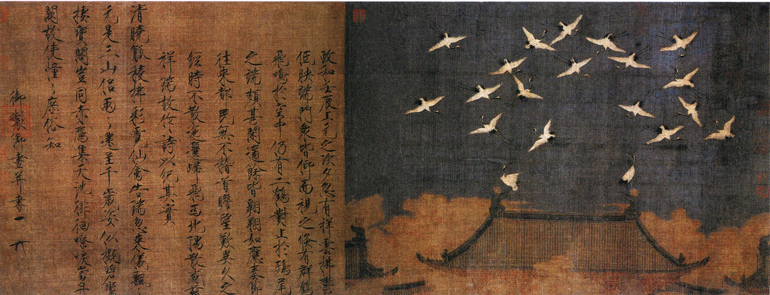 政和壬辰上元之次夕忽有祥雲拂鬱
低映端門衆皆仰而視之倏有群鶴
飛鳴於空中仍有二鶴對止於鴟尾
之端頗甚閑適餘皆翱翔如應奏節
往來都民無不稽首瞻望歎異久之
經時不散迤邐歸飛西北隅散感茲
祥瑞故作詩以紀其實
清曉觚稜拂彩霓仙禽告瑞忽來儀飄々
元是三山侶兩々還呈千歲姿似擬碧鸞
棲寶閣豈同赤雁集天池徘徊嘹唳當丹
闕故使憧々庶俗知
御製御畫并書